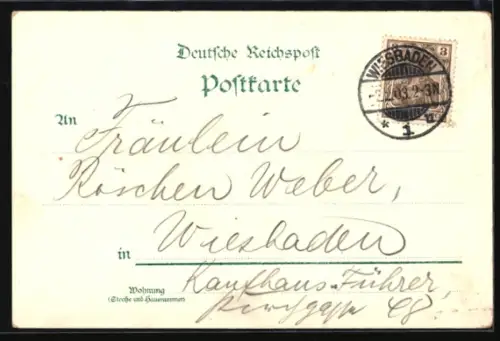 Deutsche Reichspost
Postkarte
3
WIESBADEN
2-3N
* 1
An Fräulein
Röschen Weber,
in Wiesbaden
Wohnung
(Straße und Hausnummer)
Kaufhaus Führer,
Kirchgasse 48.